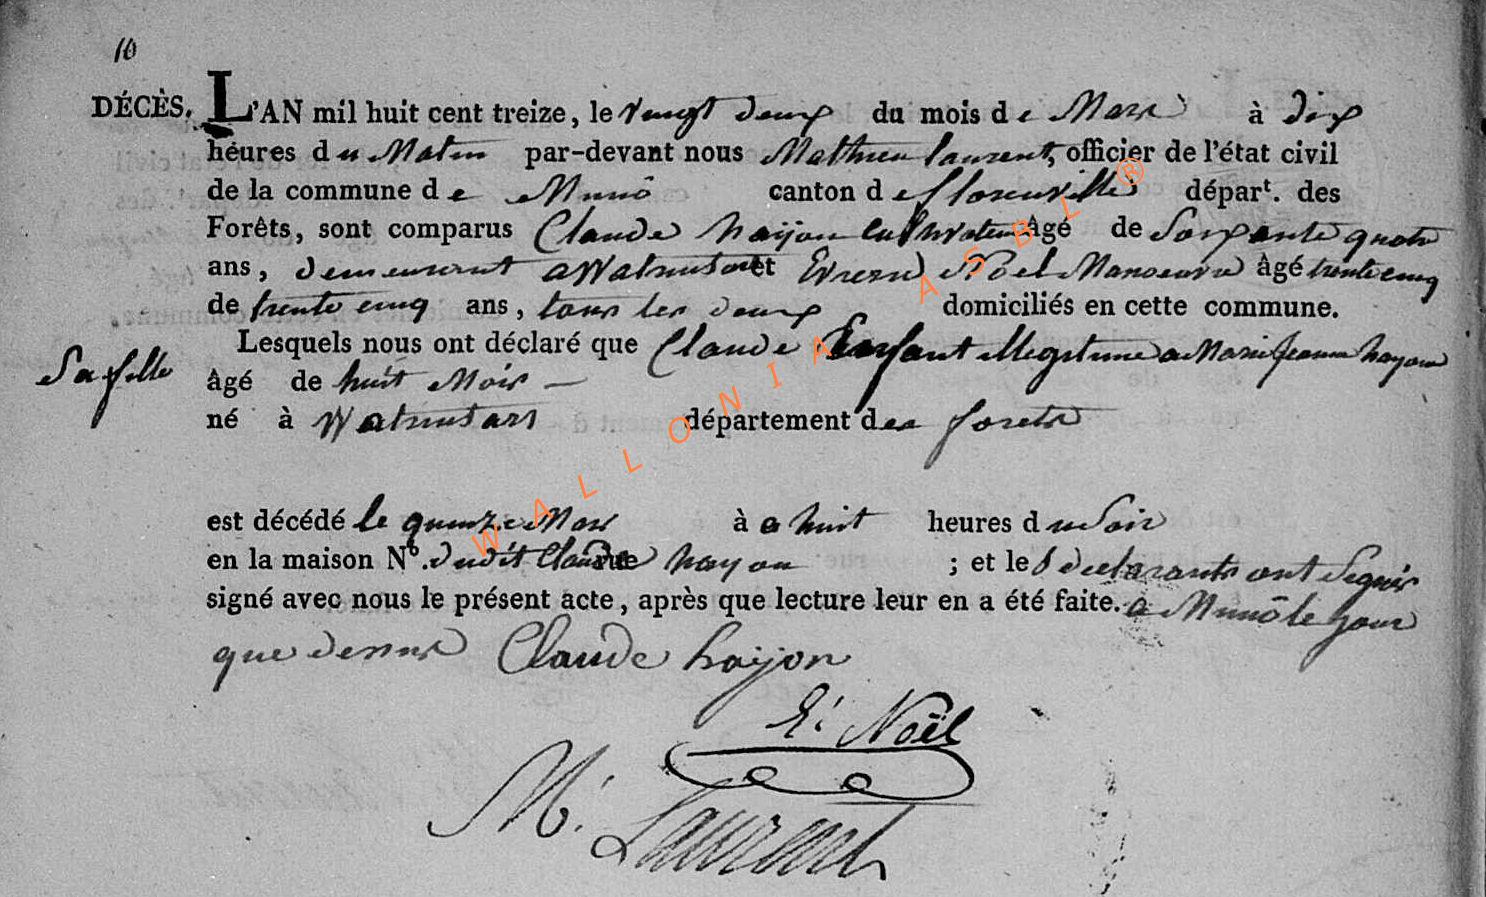 10
DÉCÈS. L'AN mil huit cent treize, le vingt deux du mois de Mars à dix
heures du Matin par-devant nous Mathieu laurent, officier de l'état civil
de la commune de Munô canton de florenville départ. des
Forêts, sont comparus Claude hayon cultivateur âgé de Soixante quatre
ans, demeurant a Watrinsart et Evrard Noël Manoeuvre âgé trente cinq
de trente cinq ans, tous les deux domiciliés en cette commune.
Lesquels nous ont déclaré que Claude Enfant illegitime a Marie Jeanne hayon
Sa fille
âgé de huit Mois —
né à Watrinsart département des forets
est décédé le quinze Mars à a huit heures du Soir
en la maison N.º dudit Claude rue hayon ; et les declarants ont
signé avec nous le présent acte, après que lecture leur en a été faite. a Munô le jour
que dessus Claude hayon
E: Noël
M: Laurent
WALLONIA ASBL ®